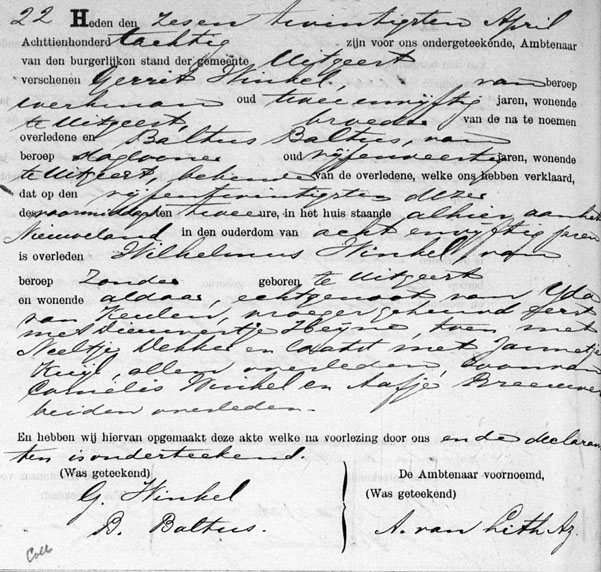 22 Heden den zesen twintigsten April
Achttienhonderd tachtig zijn voor ons ondergeteekende, Ambtenaar
van den burgerlijken stand der gemeente Uitgeest
verschenen Gerrit Winkel, van beroep
werkman oud twee envijftig jaren, wonende
te Uitgeest, broeder van de na te noemen
overledene en Baltus Baltus, van
beroep daglooner oud vijfenveertig jaren, wonende
te Uitgeest, bekende van de overledene, welke ons hebben verklaard,
dat op den vijfentwintigsten dezer
des voormiddags ten twee ure, in het huis staande alhier aan het
Nieuweland in den ouderdom van acht envijftig jaren
is overleden Wilhelmus Winkel van
beroep Zonder geboren te Uitgeest
en wonende aldaar, echtgenoot van Yda
van Keulen, vroeger gehuwd eerst
met Dieuwertje Heyne, toen met
Neeltje Dekker en laatst met Jannetje
Kuijl, allen overleden, zoon van
Cornelis Winkel en Aafje Breeuwer
beiden overleden.
En hebben wij hiervan opgemaakt deze akte welke na voorlezing door ons en de declaran
ten is onderteekend.
(Was geteekend)
G. Winkel
B. Baltus.
De Ambtenaar voornoemd,
(Was geteekend)
A. van Lith Az.
Coll